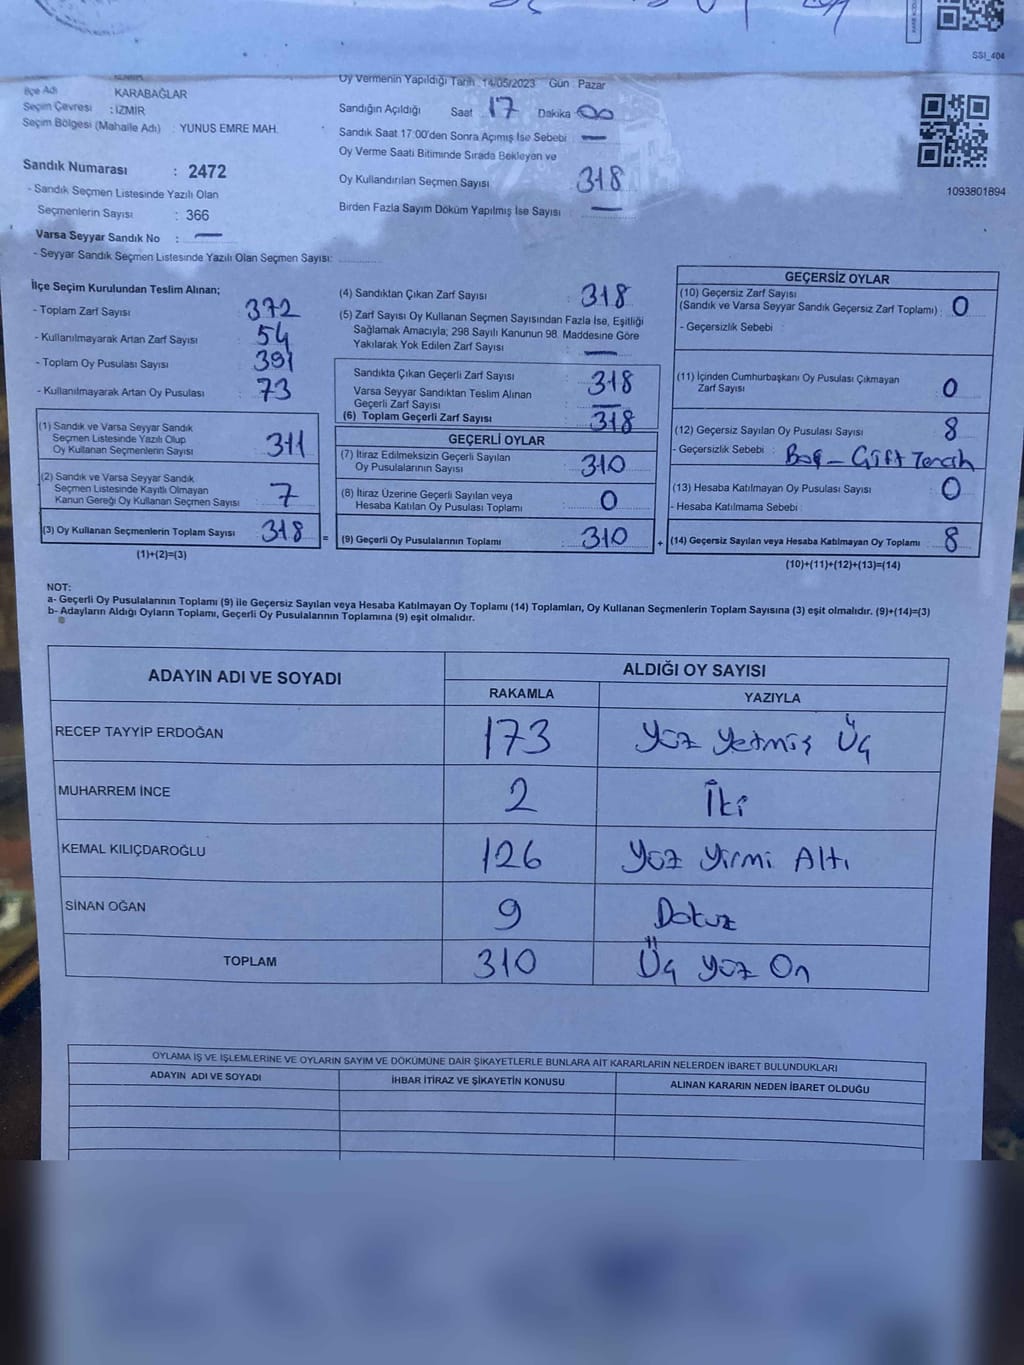 SSI_404
İlçe Adı KARABAĞLAR
Seçim Çevresi : İZMİR
Seçim Bölgesi (Mahalle Adı) : YUNUS EMRE MAH.
Sandık Numarası : 2472
- Sandık Seçmen Listesinde Yazılı Olan
Seçmenlerin Sayısı : 366
Varsa Seyyar Sandık No : —
- Seyyar Sandık Seçmen Listesinde Yazılı Olan Seçmen Sayısı:
Oy Vermenin Yapıldığı Tarih : 14/05/2023 Gün : Pazar
Sandığın Açıldığı Saat 17 Dakika 00
Sandık Saat 17:00'den Sonra Açımış İse Sebebi : —
Oy Verme Saati Bitiminde Sırada Bekleyen ve
Oy Kullandırılan Seçmen Sayısı 318
Birden Fazla Sayım Döküm Yapılmış İse Sayısı : —
1093801894
İlçe Seçim Kurulundan Teslim Alınan;
- Toplam Zarf Sayısı : 372
- Kullanılmayarak Artan Zarf Sayısı : 54
- Toplam Oy Pusulası Sayısı : 391
- Kullanılmayarak Artan Oy Pusulası : 73
(1) Sandık ve Varsa Seyyar Sandık
Seçmen Listesinde Yazılı Olup
Oy Kullanan Seçmenlerin Sayısı : 311
(2) Sandık ve Varsa Seyyar Sandık
Seçmen Listesinde Kayıtlı Olmayan
Kanun Gereği Oy Kullanan Seçmen Sayısı : 7
(3) Oy Kullanan Seçmenlerin Toplam Sayısı : 318 =
(1)+(2)=(3)
(4) Sandıktan Çıkan Zarf Sayısı : 318
(5) Zarf Sayısı Oy Kullanan Seçmen Sayısından Fazla İse, Eşitliği
Sağlamak Amacıyla; 298 Sayılı Kanunun 98. Maddesine Göre
Yakılarak Yok Edilen Zarf Sayısı : —
Sandıkta Çıkan Geçerli Zarf Sayısı : 318
Varsa Seyyar Sandıktan Teslim Alınan
Geçerli Zarf Sayısı : —
(6) Toplam Geçerli Zarf Sayısı : 318
GEÇERLİ OYLAR
(7) İtiraz Edilmeksizin Geçerli Sayılan
Oy Pusulalarının Sayısı : 310
(8) İtiraz Üzerine Geçerli Sayılan veya
Hesaba Katılan Oy Pusulası Toplamı : 0
(9) Geçerli Oy Pusulalarının Toplamı : 310 +
GEÇERSİZ OYLAR
(10) Geçersiz Zarf Sayısı
(Sandık ve Varsa Seyyar Sandık Geçersiz Zarf Toplamı) : 0
- Geçersizlik Sebebi :
(11) İçinden Cumhurbaşkanı Oy Pusulası Çıkmayan
Zarf Sayısı : 0
(12) Geçersiz Sayılan Oy Pusulası Sayısı : 8
- Geçersizlik Sebebi : Boş - Çift Tercih
(13) Hesaba Katılmayan Oy Pusulası Sayısı : 0
- Hesaba Katılmama Sebebi :
(14) Geçersiz Sayılan veya Hesaba Katılmayan Oy Toplamı : 8
(10)+(11)+(12)+(13)=(14)
NOT:
a- Geçerli Oy Pusulalarının Toplamı (9) ile Geçersiz Sayılan veya Hesaba Katılmayan Oy Toplamı (14) Toplamları, Oy Kullanan Seçmenlerin Toplam Sayısına (3) eşit olmalıdır. (9)+(14)=(3)
b- Adayların Aldığı Oyların Toplamı, Geçerli Oy Pusulalarının Toplamına (9) eşit olmalıdır.
ADAYIN ADI VE SOYADI ALDIĞI OY SAYISI
RAKAMLA YAZIYLA
RECEP TAYYİP ERDOĞAN 173 Yüz Yetmiş Üç
MUHARREM İNCE 2 İki
KEMAL KILIÇDAROĞLU 126 Yüz Yirmi Altı
SİNAN OĞAN 9 Dokuz
TOPLAM 310 Üç Yüz On
OYLAMA İŞ VE İŞLEMLERİNE VE OYLARIN SAYIM VE DÖKÜMÜNE DAİR ŞİKAYETLERLE BUNLARA AİT KARARLARIN NELERDEN İBARET BULUNDUKLARI
ADAYIN ADI VE SOYADI İHBAR İTİRAZ VE ŞİKAYETİN KONUSU ALINAN KARARIN NEDEN İBARET OLDUĞU